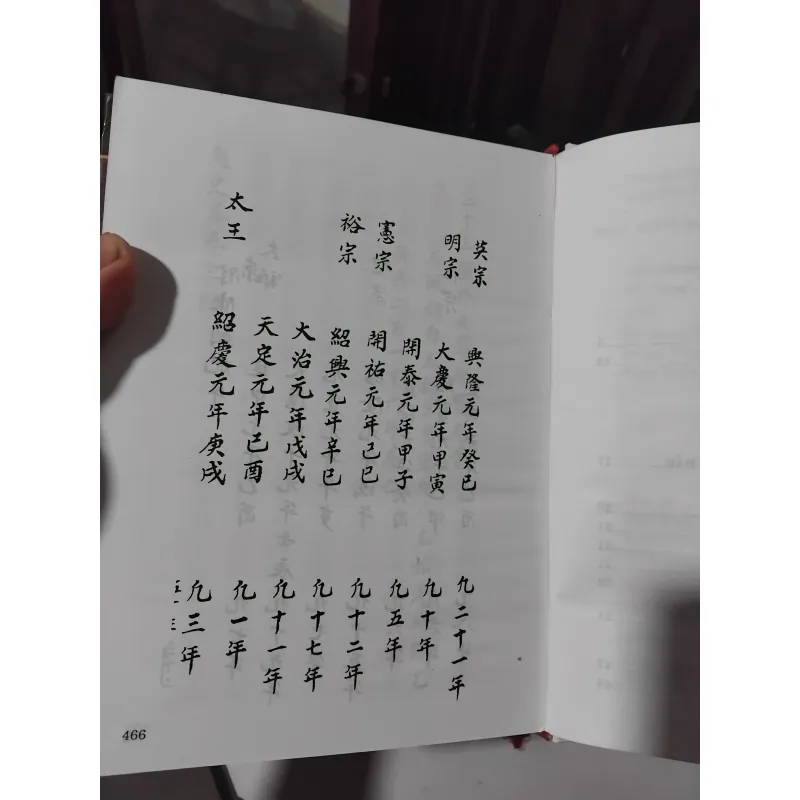 英宗 興隆元年癸巳 凢二十一年
明宗 大慶元年甲寅 凢十年
開泰元年甲子 凢五年
憲宗 開祐元年己巳 凢十二年
裕宗 紹興元年辛巳 凢十七年
大治元年戊戌 凢十一年
天定元年己酉 凢一年
太王 紹慶元年庚戌 凢三年
五一三
466